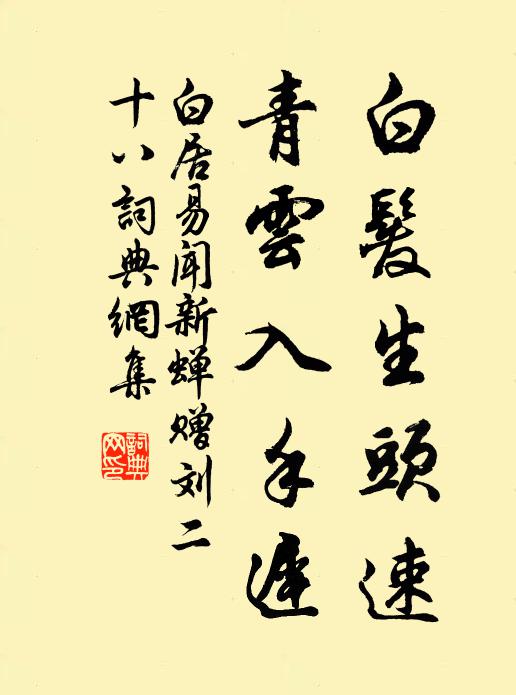 白髮生頭速
青雲入手遲
白居易聞新蝉赠刘二
十八詞典網集
詞典
网印